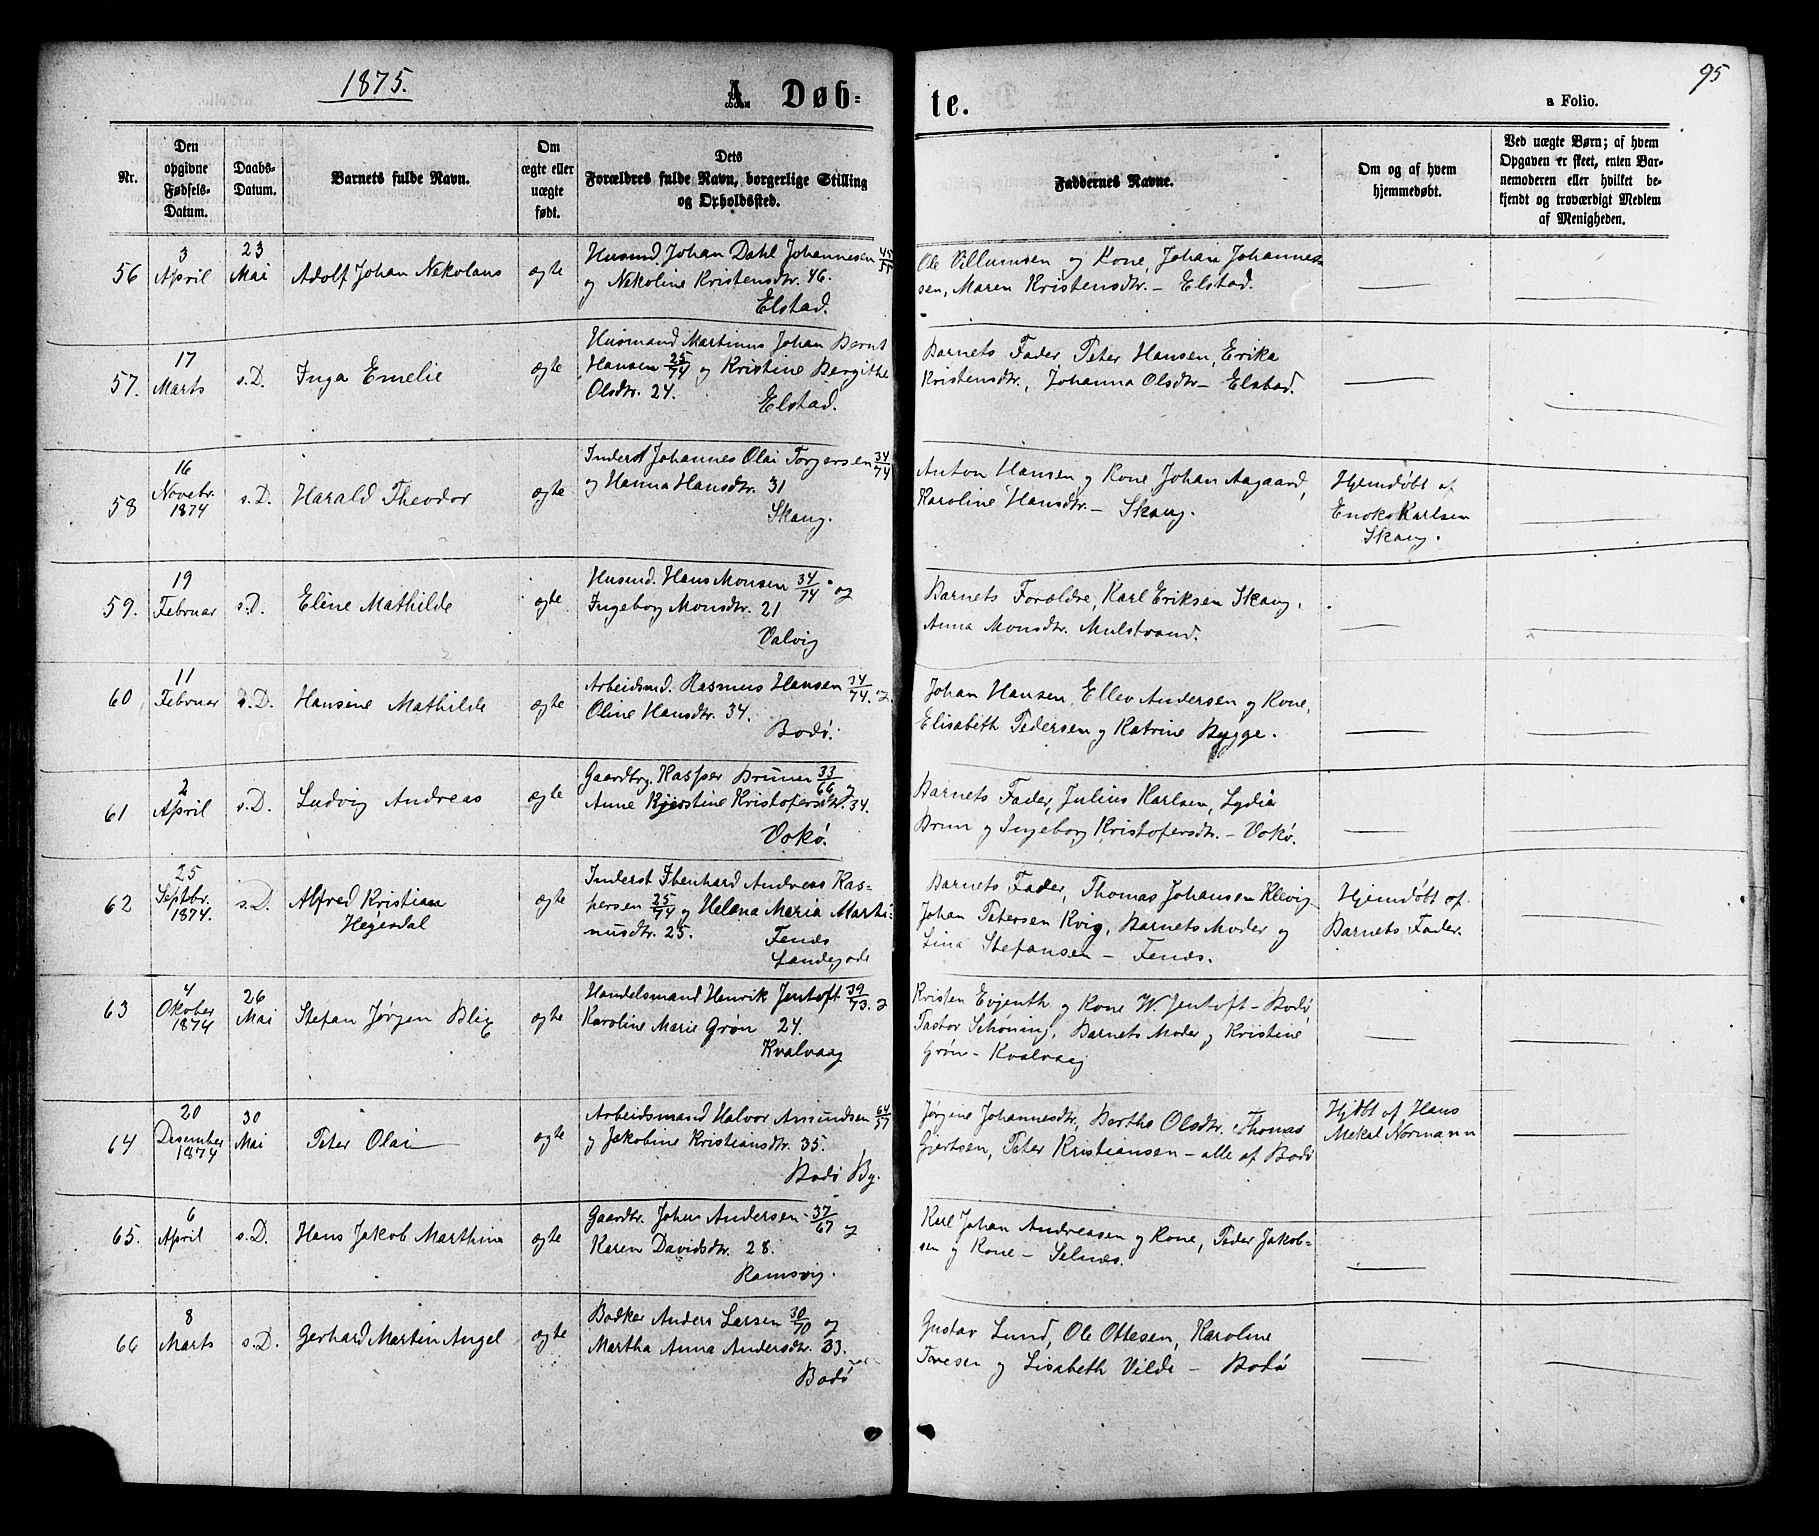 1875.
A. Døb-
te.
95
a Folio.
Nr.
Den
opgivne
Fødsels-
Datum.
Daabs-
Datum.
Barnets fulde Navn.
Om
ægte eller
uægte
født.
Dets
Forældres fulde Navn, borgerlige Stilling
og Opholdssted.
Faddernes Navne.
Om og af hvem
hjemmedøbt.
Ved uægte Børn; af hvem
Opgaven er skeet, enten Bar-
nemoderen eller hvilket be-
kjendt og troværdigt Medlem
af Menigheden.
56
3
April
23
Mai
Adolf Johan Nikolaus
ægte
Husmd. Johan Dahl Johannesen
og Nikoline Kristensdtr. 46.
Elstad.
Ole Villumsen og Kone, Johan Johannes-
sen, Maren Kristensdtr. – Elstad.
57.
17
Marts
s.D.
Inga Emelie
ægte
Husmand Martinus Johan Bernt
Hansen 25/74 og Kristine Bergithe
Olsdtr. 24.
Elstad.
Barnets Fader Peter Hansen, Erika
Kristensdtr., Johanna Olsdtr – Elstad.
58
16
Novebr.
1874
s.D.
Harald Theodor
ægte
Inderst Johannes Olai Torgersen 34/74
og Hanna Hansdtr. 31
Skaug.
Anton Hansen og Kone, Johan Aagaard,
Karoline Hansdtr. – Skaug.
Hjemdøbt af
Enok Karlsen
Skaug.
59.
19
Februar
s.D.
Eline Mathilde
ægte
Husmd. Hans Monsen 34/74 og
Ingeborg Monsdtr. 21
Valvig
Barnets Forældre, Karl Eriksen Skaug,
Anna Monsdtr. Mulstrand.
60
11
Februar
s.D.
Hansine Mathilde
ægte
Arbeidsmd. Rasmus Hansen 34/74. og
Oline Hansdtr. 34.
Bodø.
Johan Hansen, Ellev Andersen og Kone,
Elisabeth Pedersen og Katrine Bygge.
61
2
April
s.D.
Ludvig Andreas
ægte
Gaardbrg. Kasper Bruun 33/66 og
Anne Kjerstine Kristofersdtr. 34.
Vokø.
Barnets Fader, Julius Karlsen, Lydia
Brun og Ingeborg Kristofersdtr. – Vokø.
62
25
Septbr.
1874.
s.D.
Alfred Kristian
Hegesdal
ægte
Inderst Ebenhard Andreas Kas-
persen 25/74 og Helena Maria Marti-
nusdtr. 25.
Fenes
Landegode
Barnets Fader, Thomas Johansen Klevig
Johan Petersen Kvig, Barnets Moder og
Lina Stefansen – Fenes.
Hjemdøbt af
Barnets Fader.
63
4
Oktober
1874
26
Mai
Stefan Jørgen Blix
ægte
Handelsmand Henrik Jentoft 39/73. og
Karoline Marie Grøn 24.
Kvalvaag
Kristen Evjenth og Kone W. Jentoft – Bodø
Pastor Schøning, Barnets Moder og Kristine
Grøn – Kvalvaag
64
20
Desember
1874
30
Mai
Peter Olai
ægte
Arbeidsmand Halvor Amundsen 64/57
og Jakobine Kristiansdtr. 35.
Bodø By.
Jørgine Johannesdtr, Berthe Olsdtr. Thomas
Gjertsen, Peter Kristiansen – alle af Bodø
Hjdbt af Hans
Mekal Normann
65.
6
April
s.D.
Hans Jakob Marthin
ægte
Gaardbr. Johan Andersen 37/67 og
Karen Davidsdtr. 28.
Ramsvig.
Karl Johan Andreasen og Kone, Peder Jakob-
sen og Kone – Selnes.
66
8
Marts
s.D.
Gerhard Martin Angel
ægte
Bødker Anders Larsen 30/70 og
Martha Anna Andersdtr. 33.
Bodø
Gustav Lund, Ole Ottesen, Karoline
Tovesen og Lisabeth Vilde – Bodø